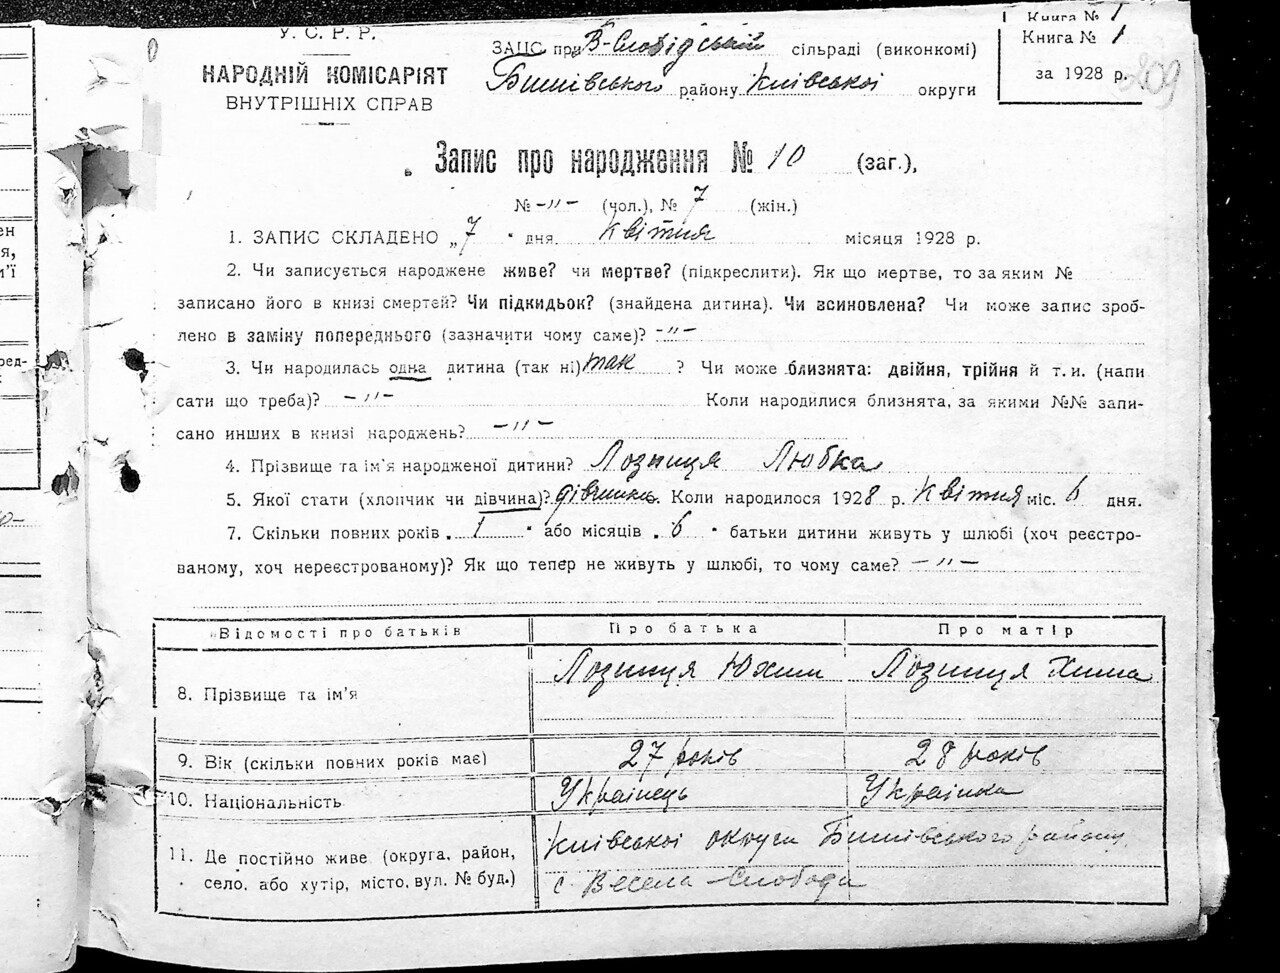 У. С. Р. Р.
НАРОДНІЙ КОМІСАРІЯТ
ВНУТРІШНІХ СПРАВ
ЗАЦС при В-Слобідській сільраді (виконкомі)
Бишівського району Київської округи
Книга № 1
Книга № 1
за 1928 р.
209
Запис про народження № 10 (заг.),
№ -"- (чол.), № 7 (жін.)
1. ЗАПИС СКЛАДЕНО „7" дня квітня місяця 1928 р.
2. Чи записується народжене живе? чи мертве? (підкреслити). Як що мертве, то за яким №
записано його в книзі смертей? Чи підкидьок? (знайдена дитина). Чи всиновлена? Чи може запис зроб-
лено в заміну попереднього (зазначити чому саме)? -"-
3. Чи народилась одна дитина (так ні) так ? Чи може близнята: двійня, трійня й т. и. (напи
сати що треба)? -"- Коли народилися близнята, за якими №№ запи-
сано инших в книзі народжень? -"-
4. Прізвище та ім'я народженої дитини? Лозниця Любка
5. Якої стати (хлопчик чи дівчина)? дівчинка. Коли народилося 1928 р. Квітня міс. 6 дня.
7. Скільки повних років „1" або місяців „6" батьки дитини живуть у шлюбі (хоч реєстро-
ваному, хоч нереєстрованому)? Як що тепер не живуть у шлюбі, то чому саме? -"-
Відомості про батьків Про батька Про матір
8. Прізвище та ім'я Лозниця Юхим Лозниця Хима
9. Вік (скільки повних років має) 27 років 28 років
10. Національність Українець Українка
11. Де постійно живе (округа, район,
село, або хутір, місто, вул. № буд.)
Київської округи Бишівського району
с Весела-Слобода